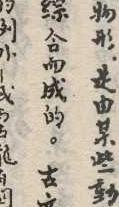 物形，是由某些動
綜合而成的。古
的例外